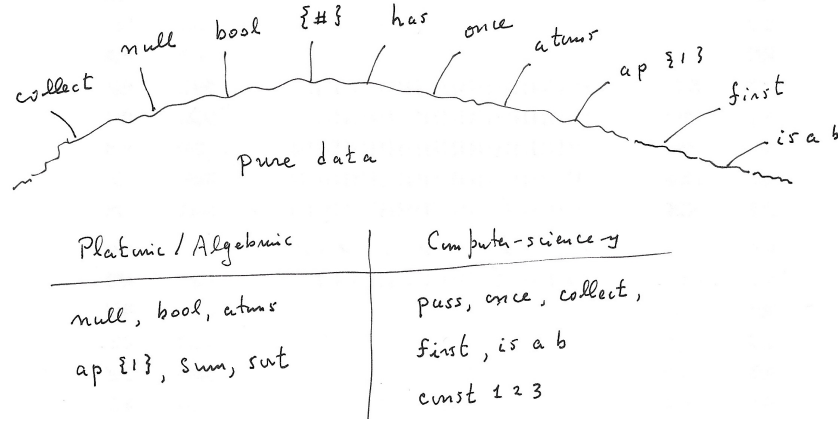 collect null bool {#} has once atoms ap {1} first is a b
pure data
Platonic / Algebraic
Computer-science-y
null, bool, atoms
ap {1}, sum, sort
pass, once, collect,
first, is a b
const 1 2 3